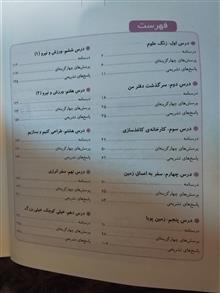 فهرست
درس اول، زنگ علوم
درسنامه
پرسش‌های چهارگزینه‌ای
پاسخ‌های تشریحی
درس دوم، سرگذشت دفتر من
درسنامه
پرسش‌های چهارگزینه‌ای
پاسخ‌های تشریحی
درس سوم، کارخانه‌ی کاغذسازی
درسنامه
پرسش‌های چهارگزینه‌ای
پاسخ‌های تشریحی
درس چهارم، سفر به اعماق زمین
درسنامه
پرسش‌های چهارگزینه‌ای
پاسخ‌های تشریحی
درس پنجم، زمین پویا
درسنامه
پرسش‌های چهارگزینه‌ای
پاسخ‌های تشریحی
درس ششم، ورزش و نیرو (۱)
درسنامه
پرسش‌های چهارگزینه‌ای
پاسخ‌های تشریحی
درس هفتم، ورزش و نیرو (۲)
درسنامه
پرسش‌های چهارگزینه‌ای
پاسخ‌های تشریحی
درس هشتم، طراحی کنیم و بسازیم
درسنامه
پرسش‌های چهارگزینه‌ای
پاسخ‌های تشریحی
درس نهم، سفر انرژی
درسنامه
پرسش‌های چهارگزینه‌ای
پاسخ‌های تشریحی
درس دهم، خیلی کوچک، خیلی بزرگ
درسنامه
پرسش‌های چهارگزینه‌ای
پاسخ‌های تشریحی